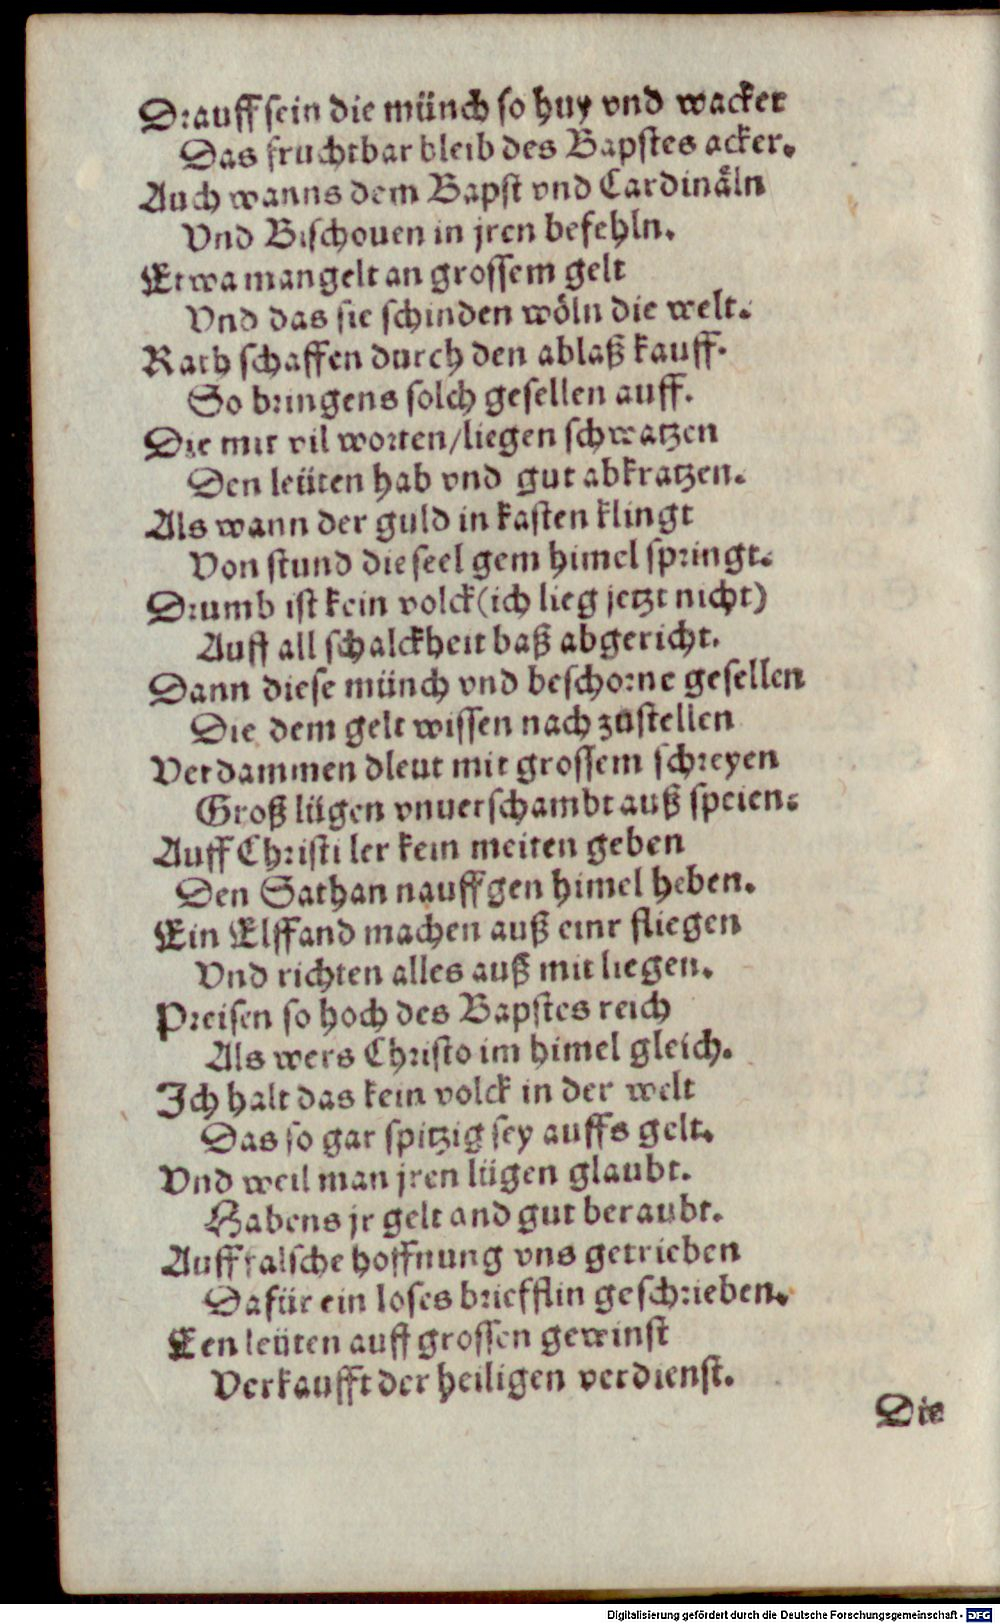 Drauff sein die münch so huy vnd wacker
Das fruchtbar bleib des Bapstes acker.
Auch wanns dem Bapst vnd Cardinåln
Vnd Bischouen in jren befehln.
Etwa mangelt an grossem gelt
Vnd das sie schinden wöln die welt.
Rath schaffen durch den ablaß kauff.
So bringens solch gesellen auff.
Die mit vil worten/liegen schwatzen
Den leüten hab vnd gut abkratzen.
Als wann der guld in kasten klingt
Von stund die seel gem himel springt.
Drumb ist kein volck (ich lieg jetzt nicht)
Auff all schalckheit baß abgericht.
Dann diese münch vnd beschorne gesellen
Die dem gelt wissen nach zůstellen
Verdammen dleut mit grossem schreyen
Groß lügen vnuerschambt auß speien.
Auff Christi ler kein meiten geben
Den Sathan nauff gen himel heben.
Ein Elffand machen auß einr fliegen
Vnd richten alles auß mit liegen.
Preisen so hoch des Bapstes reich
Als wers Christo im himel gleich.
Ich halt das kein volck in der welt
Das so gar spitzig sey auffs gelt.
Vnd weil man jren lügen glaubt.
Habens jr gelt and gut beraubt.
Auff falsche hoffnung vns getrieben
Dafür ein loses briefflin geschrieben.
Een leüten auff grossen gewinst
Verkaufft der heiligen verdienst.
Die
Digitalisierung gefördert durch die Deutsche Forschungsgemeinschaft - DFG